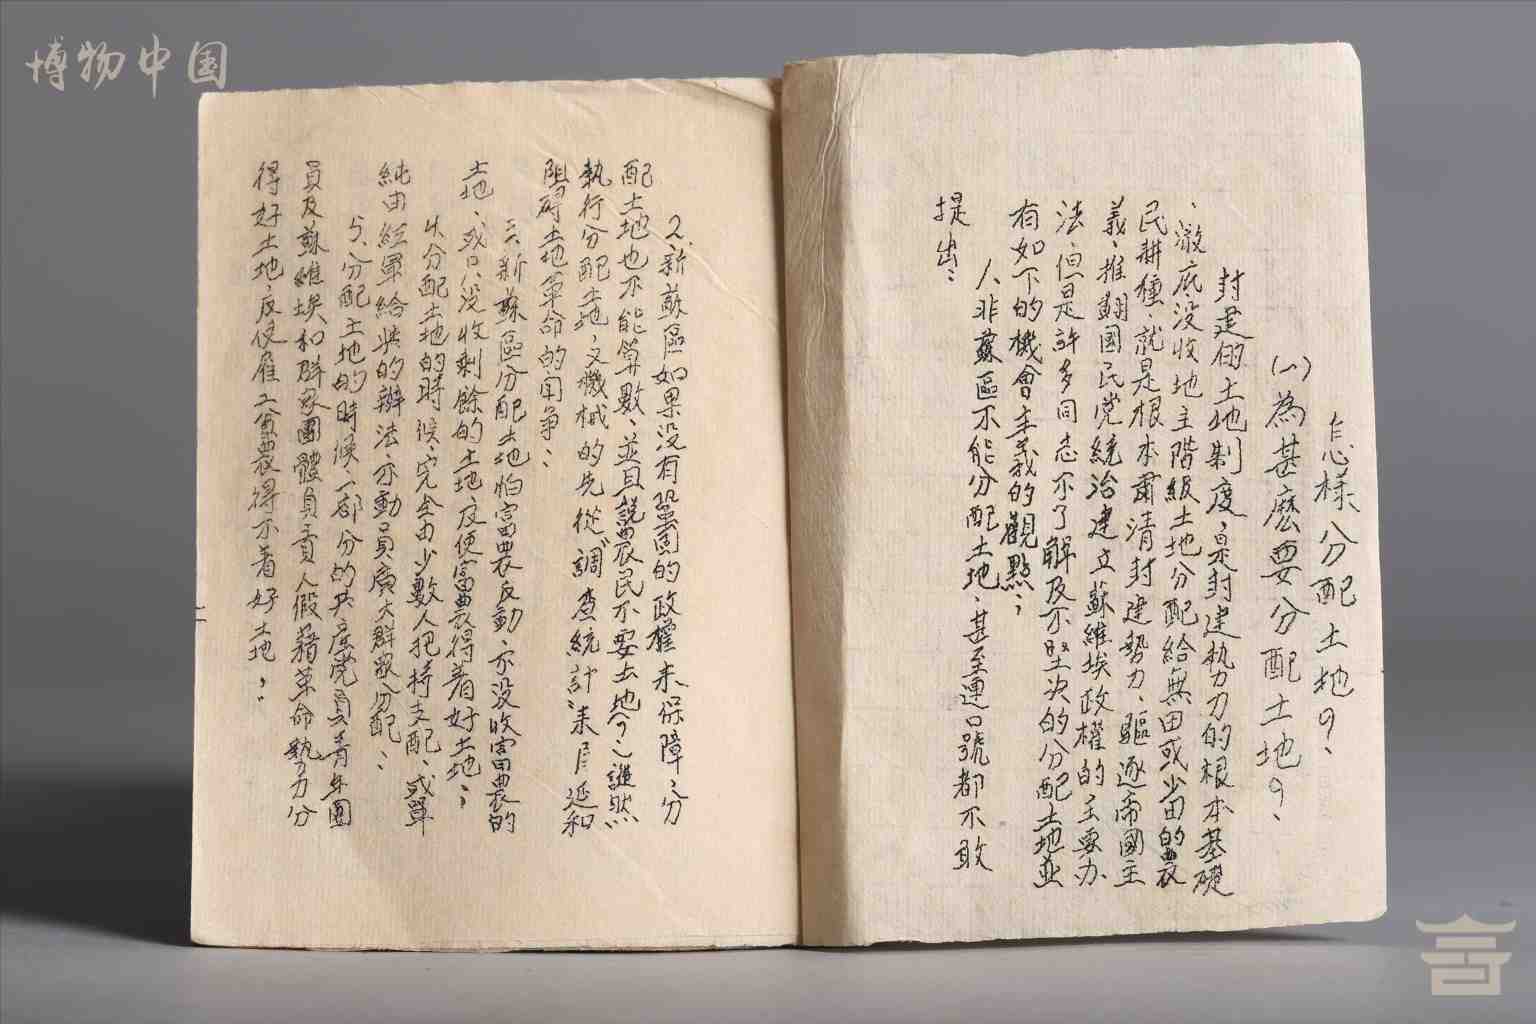 博物中国
怎樣分配土地？、
(一)為甚麽要分配土地？、
封建的土地制度，是封建執力的根本基礎
、澈底没收地主階級土地分配給無田或少田的農
民耕種、就是根本肅清封建勢力、驅逐帝國主
義、推翻國民党統治建立蘇維埃政權的主要办
法、但是許多同志不了解及不坚决的分配土地並
有如下的機會主義的觀點：
人非蘇區不能分配土地、甚至連口號都不敢
提出：
2、新蘇區如果没有鞏固的政權来保障、分
配土地也不能算數、並且説農民不要去地
執行分配土地，又機械的先從調查統計来延和
阻碍土地革命的闹争、
三、新蘇區分配土地怕富農反動、亦没收富農的
土地、或只没收剩餘的土地反使富農得着好土地；
4、分配土地的時候、完全由少數人把持支配、或單
純由紅軍給业的辦法、亦動員廣大群衆分配、
5、分配土地的時候、一部分的共産党員青年團
員及蘇維埃和群眾團體負責人假藉革命執力分
得好土地，反使雇工貧農得不着好土地，